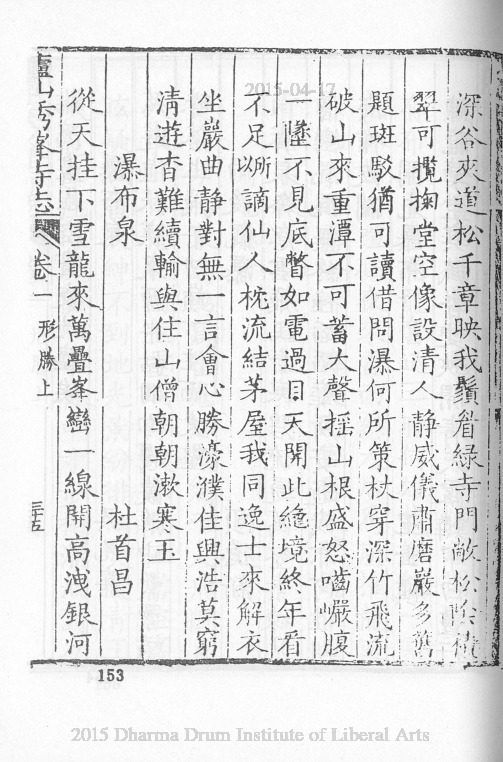 深谷夾道松千章映我鬚眉緑寺門敞松陰
翠可攬掬堂空像設清人静威儀肅磨嚴多舊
題斑駁猶可讀借問瀑何所策杖穿深竹飛流
破山來重潭不可蓄大聲摇山根盛怒嚙巖腹
一墜不見底瞥如電過目天開此絶境終年看
不足㪽以謫仙人枕流結茅屋我同逸士來解衣
坐巖曲静對無一言會心勝濠濮佳興浩莫窮
清遊杳難續輸與住山僧朝朝漱寒玉
瀑布泉 杜首昌
從天挂下雪龍來萬疊峯巒一線開高洩銀河
廬山秀峯寺志 卷一 形勝上 三五
153
2015-04-17
2015 Dharma Drum Institute of Liberal Arts